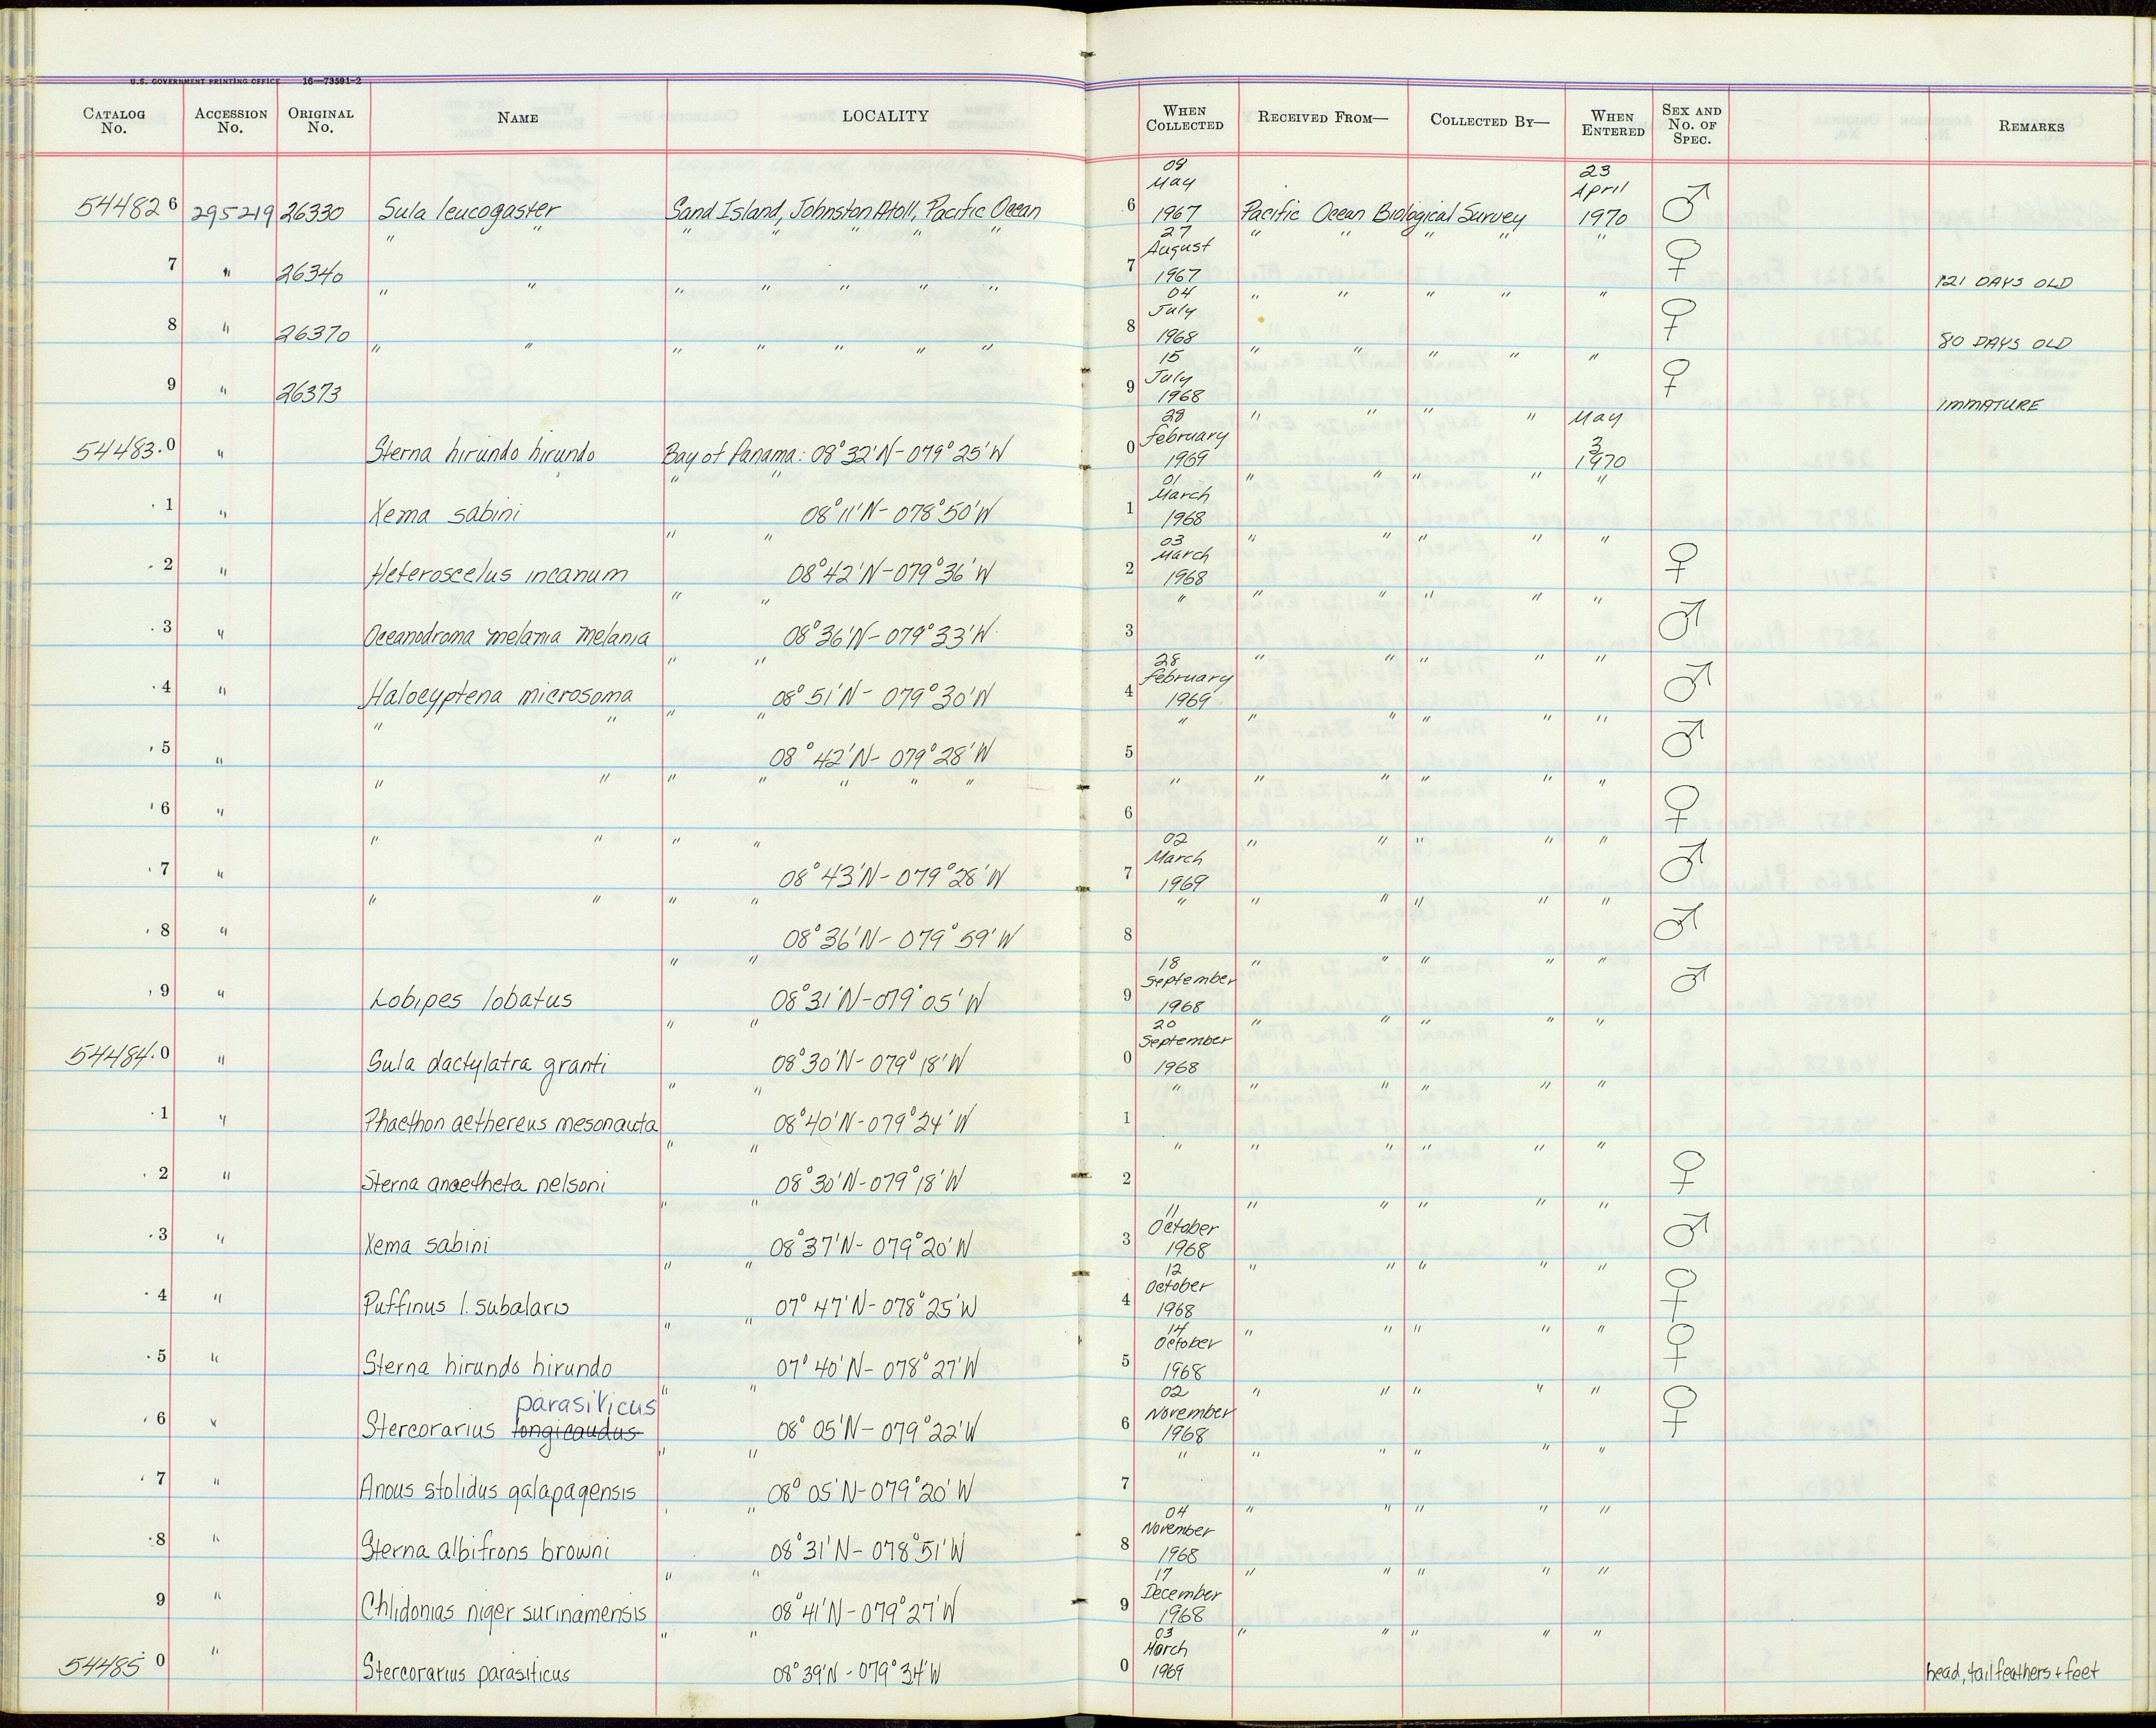 U.S. GOVERNMENT PRINTING OFFICE 16—73591-2
CATALOG No. ACCESSION No. ORIGINAL No. NAME LOCALITY WHEN COLLECTED RECEIVED FROM— COLLECTED BY— WHEN ENTERED SEX AND No. OF SPEC. REMARKS
544826 295219 26330 Sula leucogaster Sand Island, Johnston Atoll, Pacific Ocean 6 09 May 1967 Pacific Ocean Biological Survey 23 April 1970 ♂
7 " 26340 " " " " " " " 7 27 August 1967 " " " " " ♀ 121 DAYS OLD
8 " 26370 " " " " " " " 8 04 July 1968 " " " " " ♀ 80 DAYS OLD
9 " 26373 " " " " " " " 9 15 July 1968 " " " " " ♀ IMMATURE
54483.0 " Sterna hirundo hirundo Bay of Panama: 08°32'N-079°25'W 0 28 February 1969 " " " " May 3 1970
.1 " Xema sabini " " 08°11'N-078°50'W 1 01 March 1968 " " " " "
.2 " Heteroscelus incanum " " 08°42'N-079°36'W 2 03 March 1968 " " " " " ♀
.3 " Oceanodroma melania melania " " 08°36'N-079°33'W 3 " " " " " " ♂
.4 " Halocyptena microsoma " " 08°51'N-079°30'W 4 28 February 1969 " " " " " ♂
.5 " " " " " 08°42'N-079°28'W 5 " " " " " " ♂
.6 " " " " " " " " 6 " " " " " " ♀
.7 " " " " " 08°43'N-079°28'W 7 02 March 1969 " " " " " ♂
.8 " " " " " 08°36'N-079°59'W 8 " " " " " " ♂
.9 " Lobipes lobatus " " 08°31'N-079°05'W 9 18 September 1968 " " " " " ♂
54484.0 " Sula dactylatra granti " " 08°30'N-079°18'W 0 20 September 1968 " " " " "
.1 " Phaethon aethereus mesonauta " " 08°40'N-079°24'W 1 " " " " " "
.2 " Sterna anaetheta nelsoni " " 08°30'N-079°18'W 2 " " " " " " ♀
.3 " Xema sabini " " 08°37'N-079°20'W 3 11 October 1968 " " " " " ♂
.4 " Puffinus l. subalaris " " 07°47'N-078°25'W 4 12 October 1968 " " " " " ♀
.5 " Sterna hirundo hirundo " " 07°40'N-078°27'W 5 14 October 1968 " " " " " ♀
parasiticus
.6 " Stercorarius longicaudus " " 08°05'N-079°22'W 6 02 November 1968 " " " " " ♀
.7 " Anous stolidus galapagensis " " 08°05'N-079°20'W 7 " " " " " "
.8 " Sterna albifrons browni " " 08°31'N-078°51'W 8 04 November 1968 " " " " "
9 " Chlidonias niger surinamensis " " 08°41'N-079°27'W 9 17 December 1968 " " " " "
54485.0 " Stercorarius parasiticus " " 08°39'N-079°34'W 0 03 March 1969 " " " " " head, tail feathers + feet